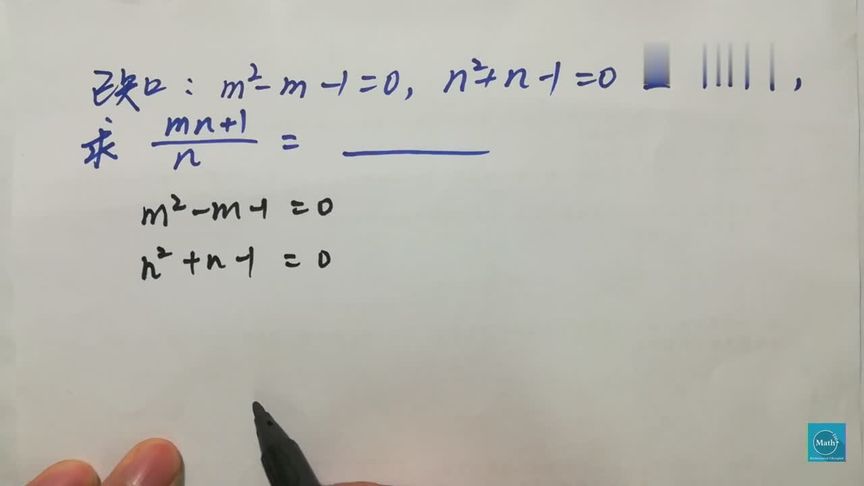 已知：m²-m-1=0, n²+n-1=0 ,
求 (mn+1)/n = ____
m²-m-1=0
n²+n-1=0
Math+